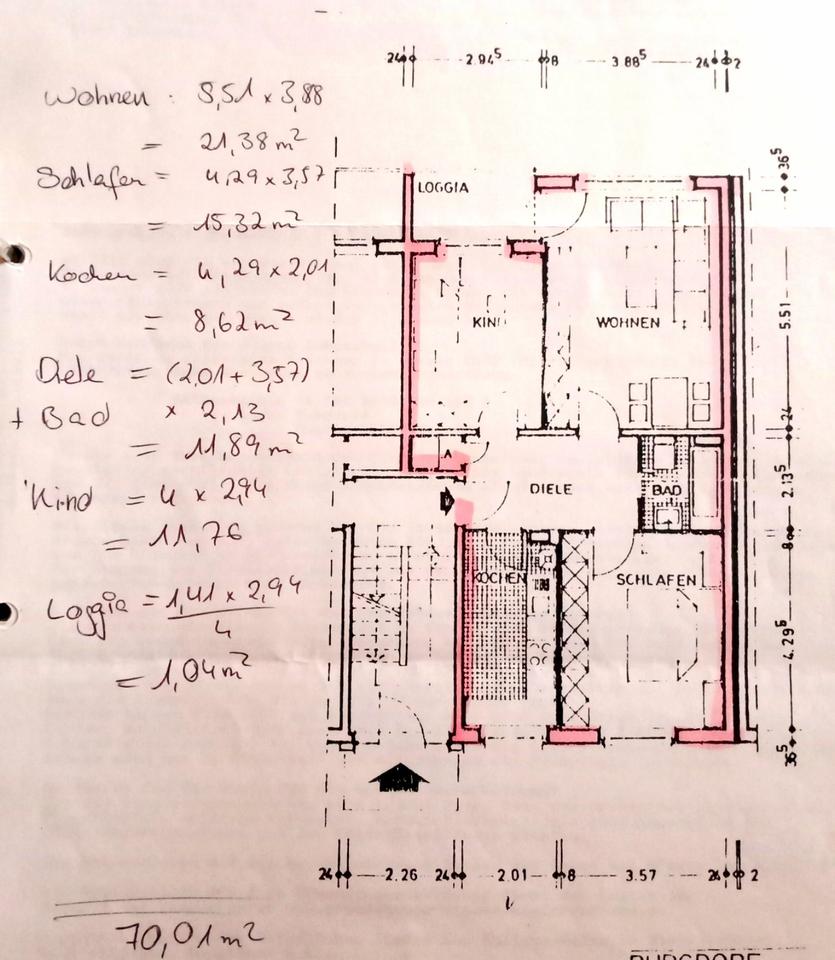 24 2.94⁵ 8 3.88⁵ 24 2
Wohnen : 5,51 x 3,88
= 21,38 m²
Schlafen = 4,29 x 3,57
= 15,32 m²
Kochen = 4,29 x 2,01
= 8,62 m²
Diele = (2,01 + 3,57)
+ Bad x 2,13
= 11,89 m²
Kind = 4 x 2,94
= 11,76
Loggia = 1,41 x 2,94
4
= 1,04 m²
70,01 m²
LOGGIA
KIND
WOHNEN
A
DIELE
BAD
KOCHEN
SCHLAFEN
36⁵
5.51
24
2.13⁵
8
4.29⁵
36⁵
24 2.26 24 2.01 8 3.57 24 2
BURGDORF